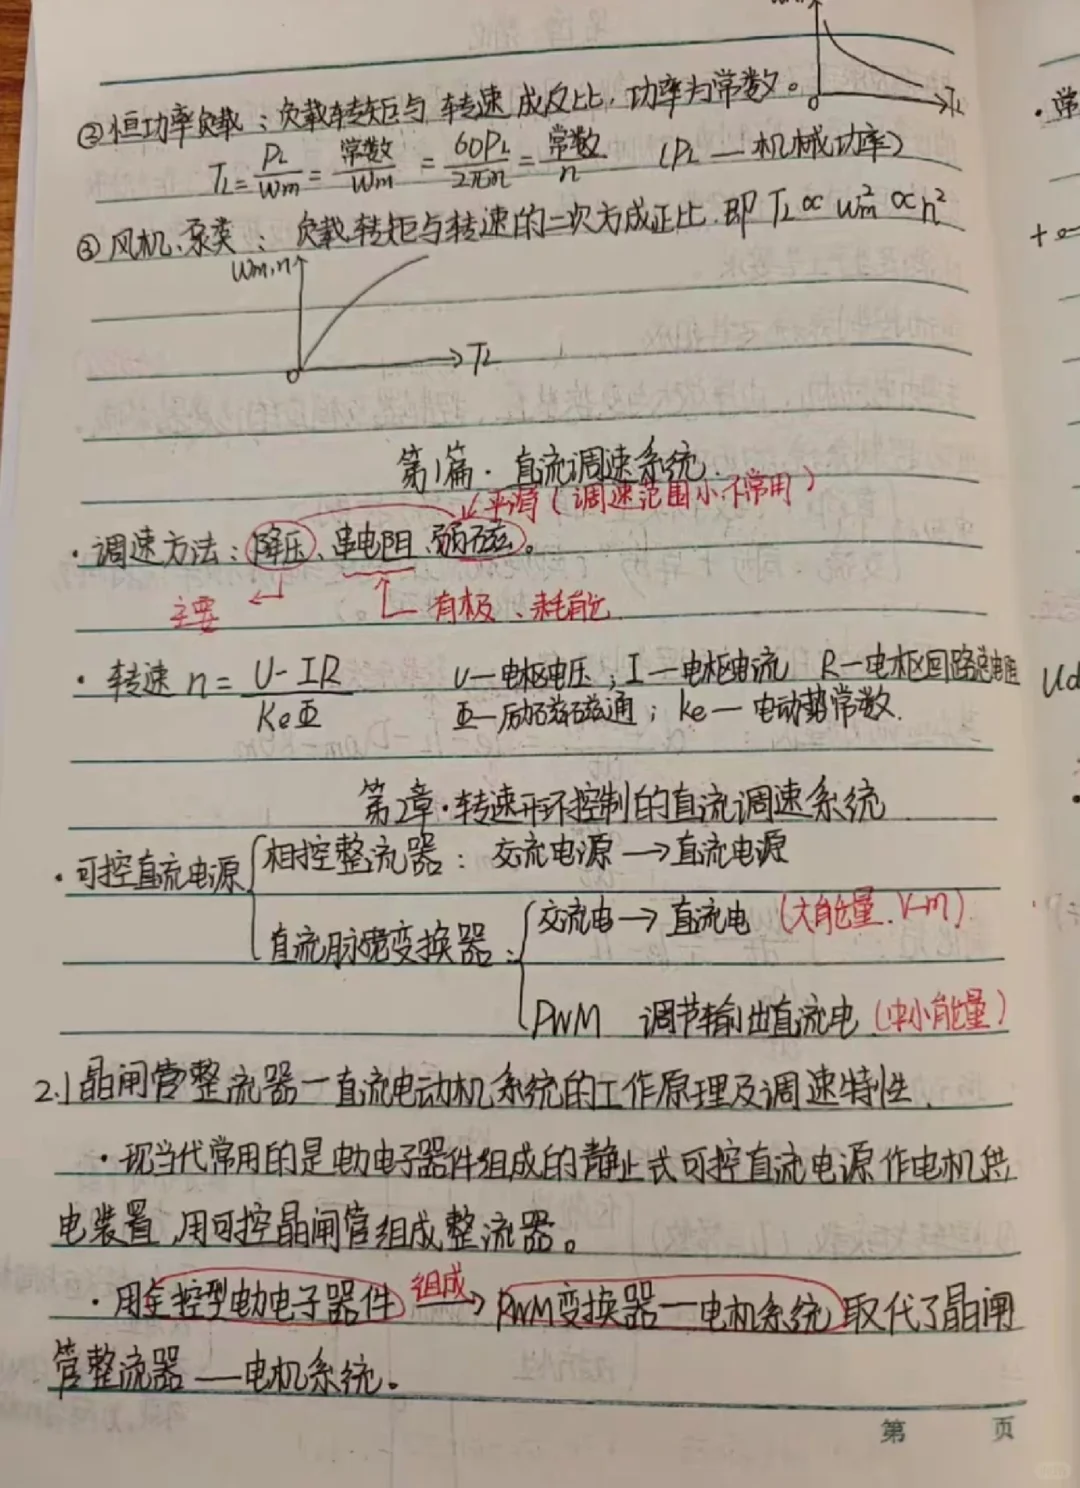 ②恒功率负载：负载转矩与转速成反比，功率为常数。
O TL
TL = PL/Wm = 常数/Wm = 60PL/2πn = 常数/n （PL—机械功率）
③风机、泵类：负载转矩与转速的二次方成正比，即 TL∝Wm²∝n²
Wm,n
O TL
第1篇·直流调速系统
平滑（调速范围小不常用）
·调速方法：降压、串电阻、弱磁。
主要 有极、耗能
·转速 n = (U-IR)/(KeΦ) U—电枢电压；I—电枢电流 R—电枢回路总电阻
Φ—励磁磁通；ke—电动势常数.
第2章·转速开环控制的直流调速系统
·可控直流电源 相控整流器：交流电源→直流电源
直流脉宽变换器： 交流电→直流电（大能量.V-M）
PWM 调节输出直流电（中小能量）
2.1晶闸管整流器—直流电动机系统的工作原理及调速特性.
·现当代常用的是电力电子器件组成的静止式可控直流电源作电机供
电装置，用可控晶闸管组成整流器。
·用全控型电力电子器件 组成→ PWM变换器—电机系统，取代了晶闸
管整流器—电机系统。
第 页